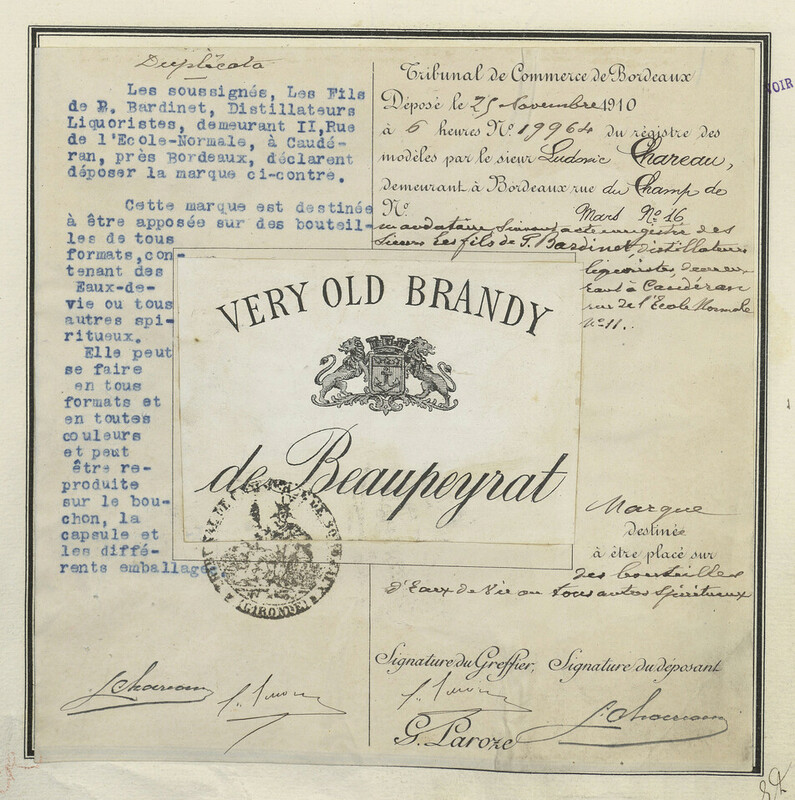 Duplicata
Les soussignés, Les Fils
de P. Bardinet, Distillateurs
Liquoristes, demeurant II,Rue
de l'Ecole-Normale, à Caudé-
ran, près Bordeaux, déclarent
déposer la marque ci-contre.
Cette marque est destinée
à être apposée sur des bouteil-
les de tous
formats,con-
tenant des
Eaux-de-
vie ou tous
autres spi-
ritueux.
Elle peut
se faire
en tous
formats et
en toutes
couleurs
et peut
être re-
produite
sur le bou-
chon, la
capsule et
les diffé-
rents emballage
Tribunal de Commerce de Bordeaux
Déposé le 25 Novembre 1910
à 6 heures N° 19964 du registre des
modèles par le sieur Ludovic Chareau,
demeurant à Bordeaux rue du Champ de
N° Mars N° 16
mandataire suivant acte enregistré des
sieurs Les fils de P. Bardinet distillateurs
liquoristes, demeu-
rant à Caudéran
rue de l'Ecole Normale
N° 11.
VERY OLD BRANDY
de Beaupeyrat
Marque
destinée
à être placé sur
des bouteilles
d'Eaux de Vie ou tous autres Spiritueux
Signature du Greffier, Signature du déposant
L. Chareau
G. Paroze
L. Chareau
(GIRONDE)
VOIR